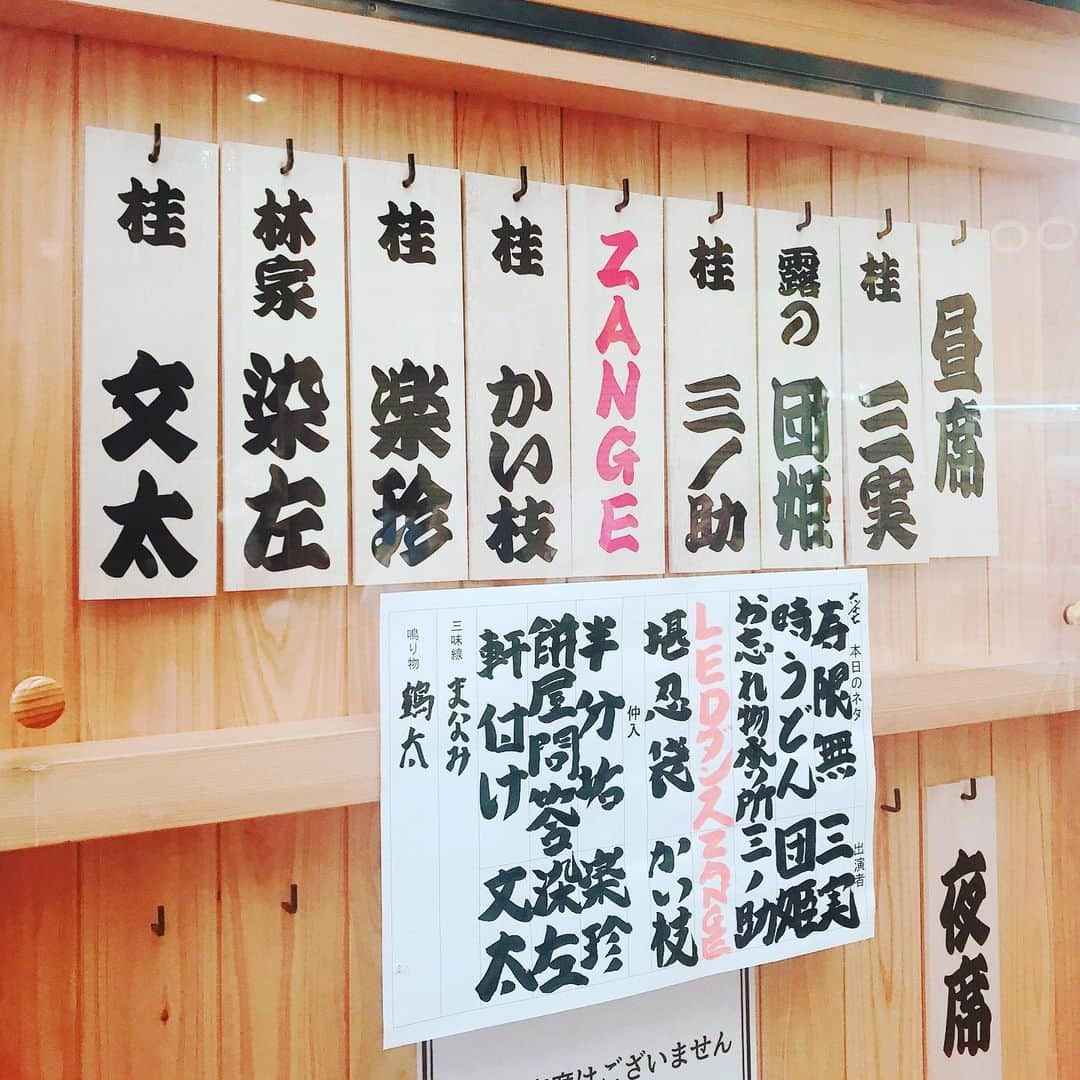 昼席
桂 三実
露の 団姫
桂 三ノ助
ZANGE
桂 かい枝
桂 楽珍
林家 染左
桂 文太
本日のネタ 出演者
寿限無 三実
時うどん 団姫
お忘れ物承り所 三ノ助
LEDダンス ZANGE
堪忍袋 かい枝
仲入
半分垢 楽珍
餅屋問答 染左
軒付け 文太
三味線 まなみ
鳴り物 鶴太
夜席
席はございません